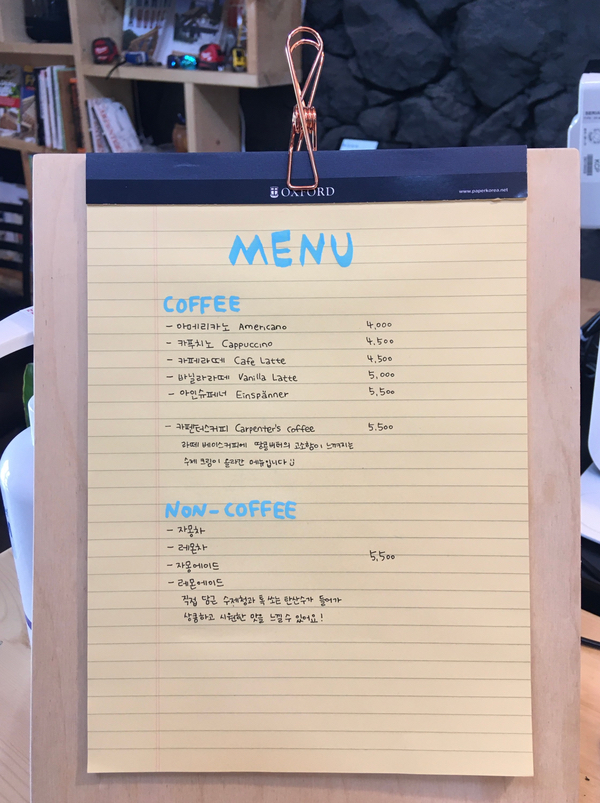 OXFORD
www.paperkorea.net
MENU
COFFEE
- 아메리카노 Americano 4,000
- 카푸치노 Cappuccino 4,500
- 카페라떼 Cafe Latte 4,500
- 바닐라라떼 Vanilla Latte 5,000
- 아인슈페너 Einspänner 5,500
- 카펜터스커피 Carpenter's coffee 5,500
라떼 베이스커피에 땅콩버터의 고소함이 느껴지는
수제 크림이 올라간 메뉴입니다
NON-COFFEE
- 자몽차
- 레몬차
- 자몽에이드
- 레몬에이드
5,500
직접 담근 수제청과 톡 쏘는 탄산수가 들어가
상큼하고 시원한 맛을 느낄 수 있어요!